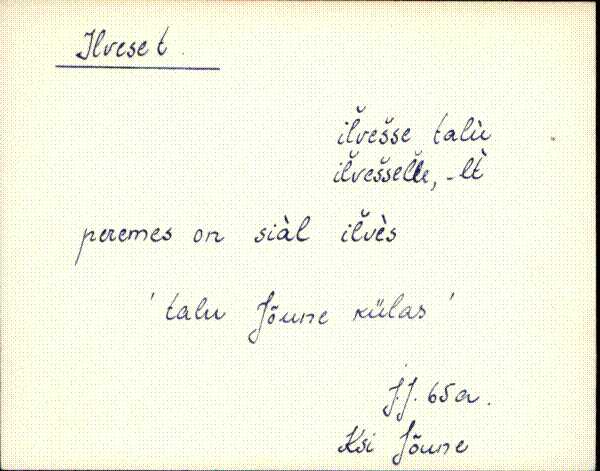 Ilveset.
ilvešse talù
ilvešselle, -lt̀
peremes on siàl ilvès
' talu Jõune külas '
J.J. 65 a.
Ksi Jõune